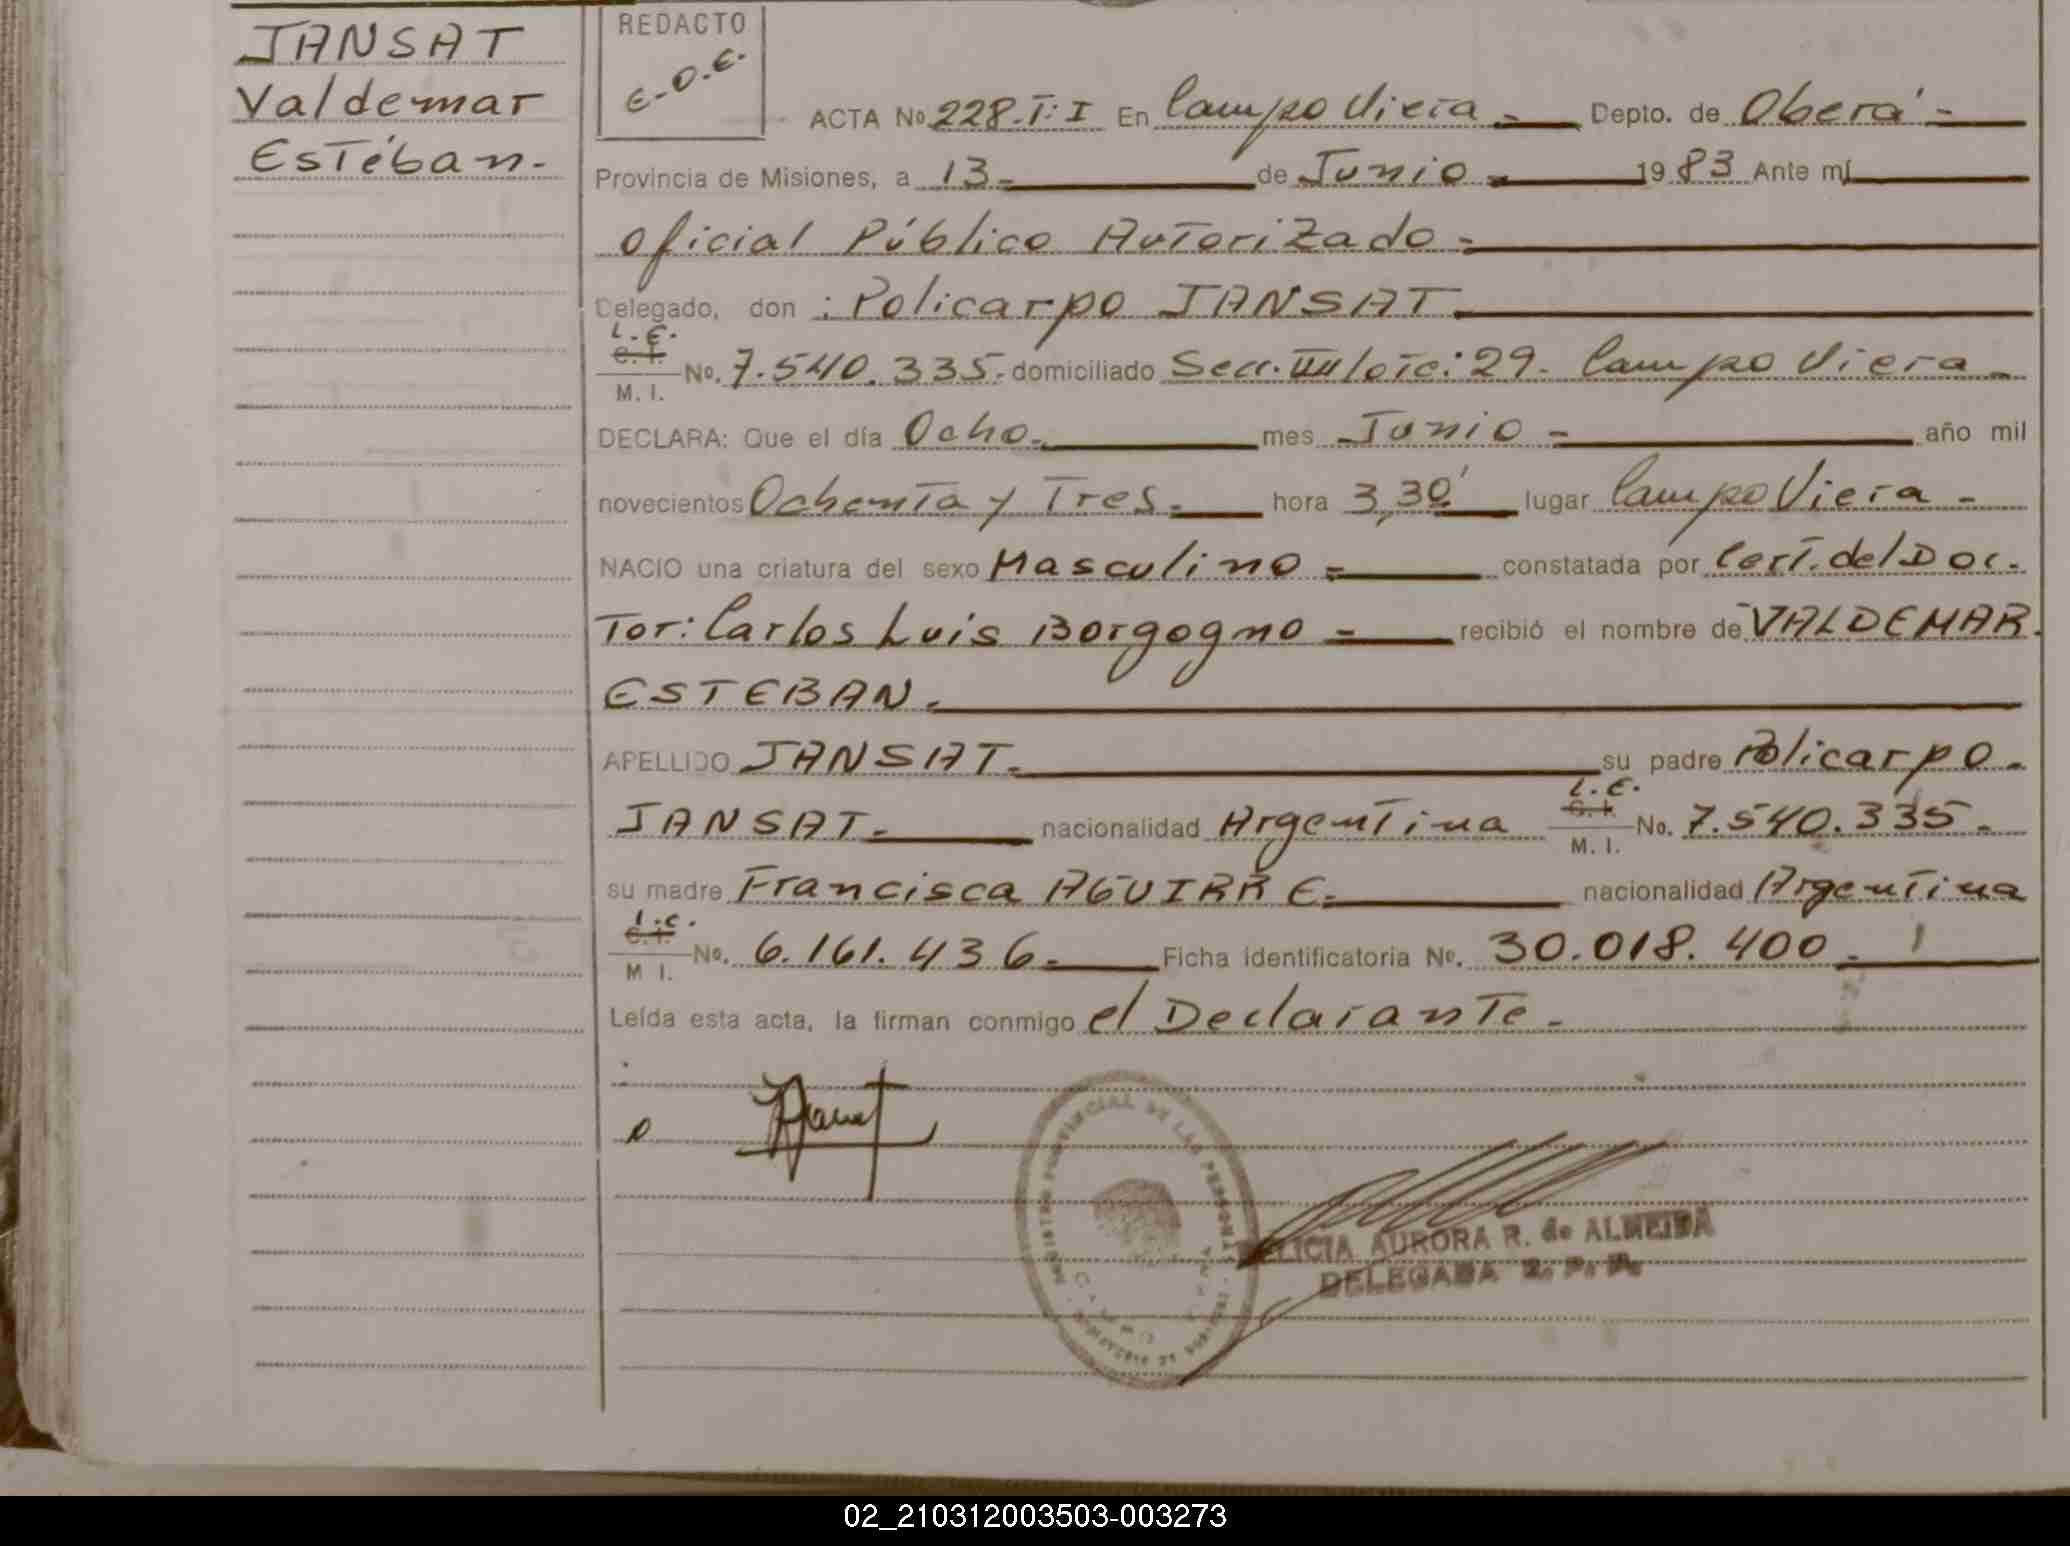 JANSAT
Valdemar
Estéban.-
REDACTO
E-O.E.
ACTA No 228.T: I En Campo Viera.- Depto. de Oberá.-
Provincia de Misiones, a 13.- de Junio.- 1983 Ante mí
Oficial Público Autorizado.-
Delegado, don : Policarpo JANSAT
L.E.
C. I.
M. I.
No. 7.540.335.- domiciliado Secc. lote: 29.- Campo Viera.-
DECLARA: Que el día Ocho.- mes Junio.- año mil
novecientos Ochenta y Tres.- hora 3,30' lugar Campo Viera.-
NACIO una criatura del sexo Masculino.- constatada por Cert. del Doc.
Tor: Carlos Luis Borgogno.- recibió el nombre de VALDEMAR.
ESTEBAN.-
APELLIDO JANSAT.- su padre Policarpo.-
L.E.
JANSAT.- nacionalidad Argentina C. I. M. I. No. 7.540.335.-
su madre Francisca AGUIRRE.- nacionalidad Argentina
L.C.
C. I.
M I.
No. 6.161.436.- Ficha identificatoria No. 30.018.400.-
Leída esta acta, la firman conmigo el Declarante.-
PROVINCIAL DE LAS PERSONAS
FELICIA AURORA R. de ALMEIDA
DELEGADA R. P. P.
02_210312003503-003273